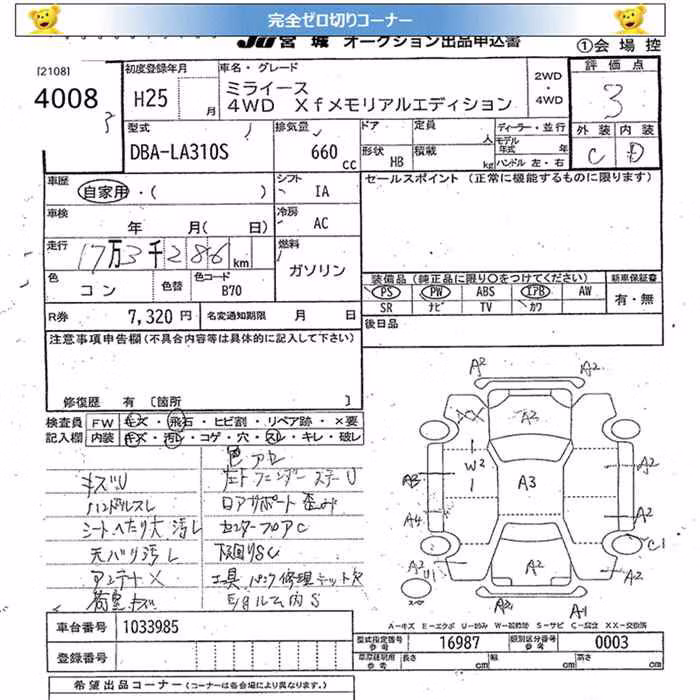 完全ゼロ切りコーナー
JU 宮城 オークション出品申込書
①会場控
[2108]
4008
初度登録年月
H25 月
車名・グレード
ミライース
4WD Xfメモリアルエディション
2WD
・
4WD
評価点
3
型式
DBA-LA310S
排気量
660 cc
ドア
定員 人
形状 HB
積載 kg
ディーラー・並行
モデル年式 年
ハンドル 左・右
外装 内装
C D
車歴
自家用・( )
シフト
IA
セールスポイント (正常に機能するものに限ります)
車検
年 月( 日)
冷房
AC
走行
17万3千286km
燃料
ガソリン
色
コン
色替
色コード
B70
装備品 (純正品に限り○をつけてください)
新車保証書
PS PW ABS エアB AW
SR ナビ TV カワ
有・無
R券 7,320円
名変通知期限 月 日
後日品
注意事項申告欄(不具合内容等は具体的に記入して下さい)
修復歴 有 [箇所 ]
検査員
記入欄
FW キズ・飛石・ヒビ割・リペア跡・×要
内装 キズ・汚レ・コゲ・穴・スレ・キレ・破レ
色アセ
キズU
左トフェンダーステーU
ハンドルスレ
ロアサポート歪み
シートヘたり大 汚レ
センターフロアC
天バリ汚レ
下廻りSC
アンテナ×
工具パンク修理キット欠
荷室キズ
E/gルーム内S
A2
A2
XX
A2
W2
A3
A2
A3
A4
A2
C1
A2
U1
A2
A2
A2
A1
A-キズ E-エクボ U-凹み W-補修跡 S-サビ C-腐食 XX-交換済
車台番号 1033985
型式指定番号
参考
16987
類別区分番号
参考
0003
登録番号
長さ cm
幅 cm
高さ cm
希望出品コーナー (コーナーは各会場により異なります。)